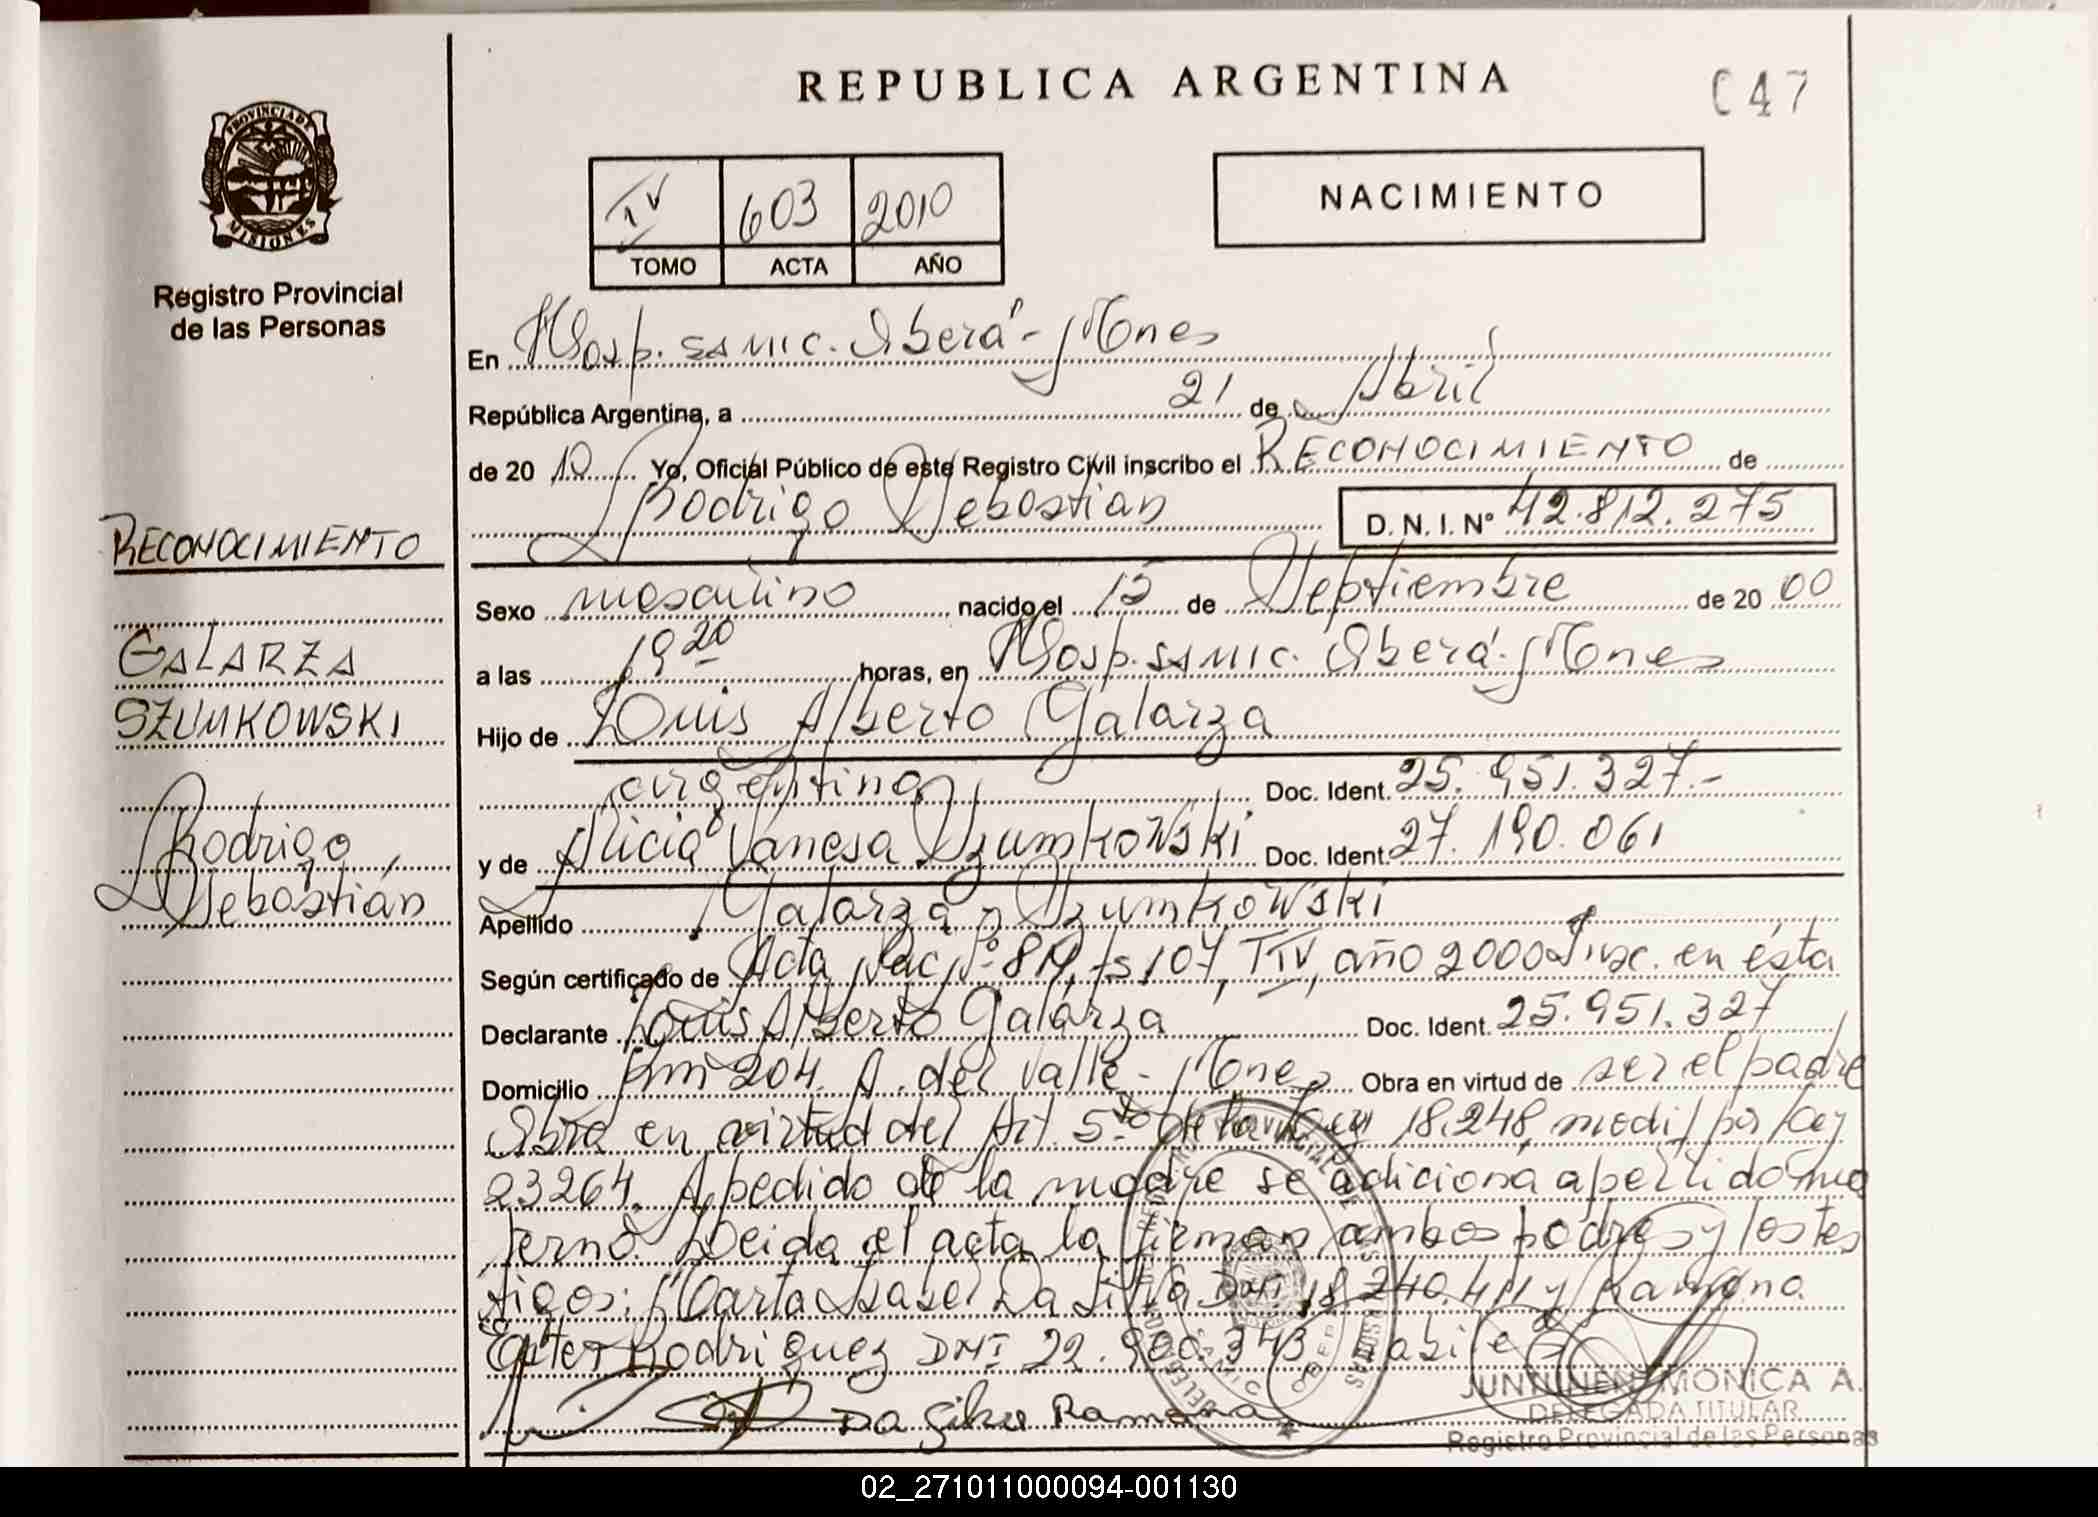 REPUBLICA ARGENTINA
C47
PROVINCIA DE
MISIONES
Registro Provincial
de las Personas
IV 603 2010
TOMO ACTA AÑO
NACIMIENTO
En Hosp. SAMIC. Oberá - Mones
República Argentina, a 21 de Abril
de 20 10 Yo, Oficial Público de este Registro Civil inscribo el RECONOCIMIENTO de
Rodrigo Sebastián D.N.I. Nº 42.812.275
RECONOCIMIENTO
GALARZA
SZUMKOWSKI
Rodrigo
Sebastián
Sexo masculino nacido el 15 de Septiembre de 20 00
a las 19 20 horas, en Hosp. SAMIC. Oberá - Mones
Hijo de Louis Alberto Galarza
argentino Doc. Ident. 25.951.327.-
y de Alicia Vanesa Szumkowski Doc. Ident. 27.190.061
Apellido Galarza Szumkowski
Según certificado de Acta Nac. Nº 814, fs 107, TIV, año 2000 Insc. en ésta
Declarante Louis Alberto Galarza Doc. Ident. 25.951.327
Domicilio Km 204 A. del Valle - Mones Obra en virtud de ser el padre
Obra en virtud del Art 5to de la Ley 18.248, modif por Ley
23264. A pedido de la madre se adiciona apellido ma
terno. Leida el acta la firman ambos padres y los tes
tigos: Marta Isabel Da Silva DNI 18.240.411 y Ramona
Ester Rodriguez DNI 22.900.343
Da Silva Ramona
JUNNINEN MONICA A.
DELEGADA TITULAR
Registro Provincial de las Personas
02_271011000094-001130